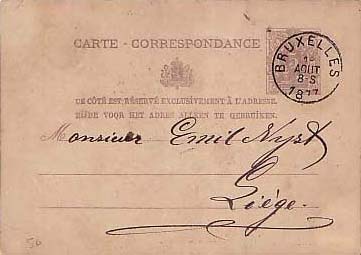 CARTE - CORRESPONDANCE
BRUXELLES
1
AOUT
8-S
1877
CE CÔTÉ EST RÉSERVÉ EXCLUSIVEMENT À L'ADRESSE.
ZIJDE VOOR HET ADRES ALLEEN TE GEBRUIKEN.
Monsieur Emil Nyst
Liège.
50